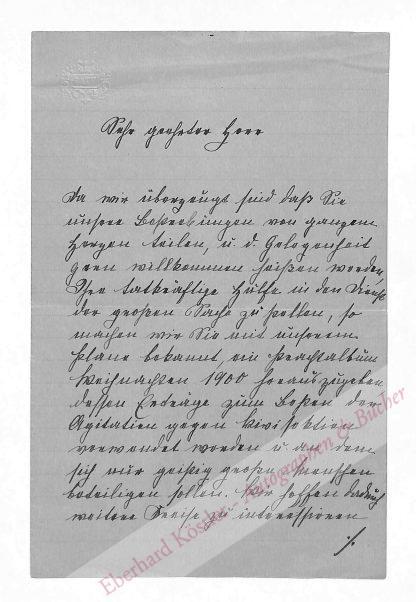 Sehr geehrter Herr
Da wir überzeugt sind daß Sie
unsere Bestrebungen von ganzem
Herzen teilen, u. d. Gelegenheit
gern willkommen heißen werden,
Ihre tatkräftige Hülfe in den Dienst
der großen Sache zu stellen, so
machen wir Sie mit unserem
Plane bekannt, ein Prachtalbum
Weihnachten 1900 herauszugeben
dessen Erträge zum Besten der
Agitation gegen Vivisektion
verwendet werden u. an dem
sich nur geistig große Menschen
beteiligen sollen. Wir hoffen dadurch
weitere Kreise zu interessieren
./.
Eberhard Köstler Autographen & Bücher